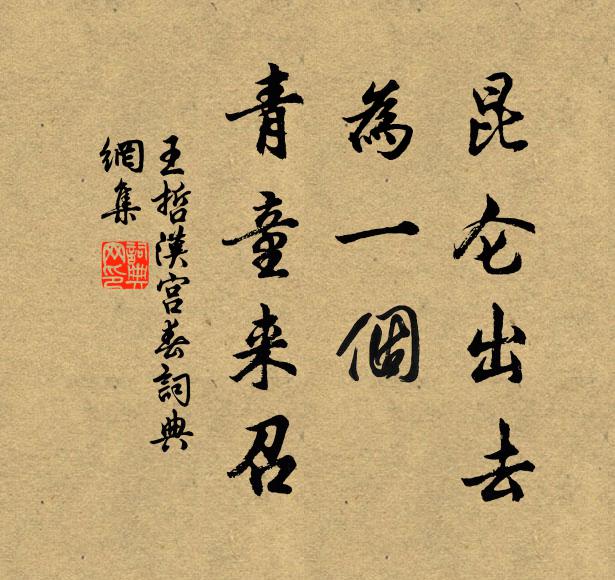 昆仑出去
為一個
青童来召
王哲漢宫春詞典
網集
詞典
网印